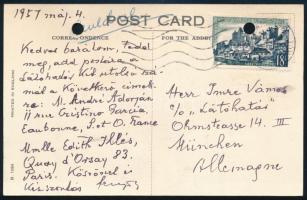 1957 máj. 4.
POST CARD
CORRESPONDENCE
FOR THE ADDRESS
Kedves barátom, tedd
meg, add postára a
Látóhatár két utolsó szá-
mát a következő címek-
re: M. André Adorján
11 rue Cristino Garcia,
Eaubonne, S. et O. France
Mmlle Edith Illés,
Quay d'Orsay 83.
Paris. Köszönöm és
18F
Herr Imre Vámos
c/o "Látóhatár"
Ohmstrasse 14. III
München
Allemagne
PRINTED IN ENGLAND